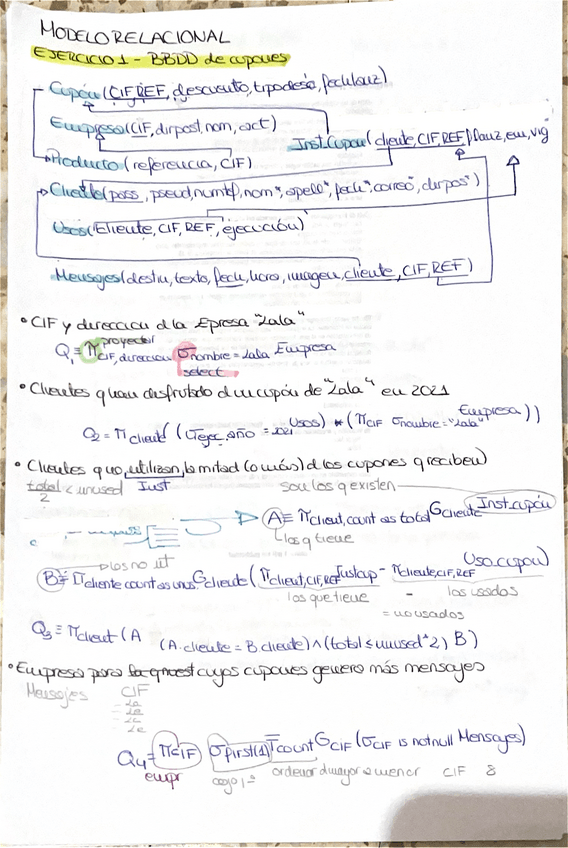 MODELO RELACIONAL
EJERCICIO 1 - BBDD de cupones
Cupón (CIF, REF, descuento, tipodesc, fechlanz)
Empresa (CIF, dirpost, nom, cact)
Inst.Cupon (cliente, CIF, REF, flanz, env, vig
Producto (referencia, CIF)
Cliente (pass, pseud, numtlf, nom*, apell*, fech*, correo*, dirpos*)
Usos (Cliente, CIF, REF, ejecución)
Mensajes (destin, texto, fech, hora, imagen, cliente, CIF, REF)
• CIF y direccion d la Epresa "Lala"
proyector
Q1 ≡ π CIF, direccion σ nombre = Lala Empresa
select
• Clientes q han disfrutado d un cupón de "Lala" en 2021
Q2 = π client ( (σ ejec.año = 2021 Usos) * (π CIF σ nombre = "Lala" Empresa ))
• Clientes q no utilizan la mitad (o más) d los cupones q reciben
total/2 < unused Inst son los q existen
A ≡ π client, count as total G cliente Inst.cupón
los q tiene
los no ut
B ≡ π cliente count as unus. G cliente ( π client, CIF, REF Instcup - π cliente, CIF, REF Uso.cupon)
los que tiene - los usados
= no usados
Q3 ≡ π client (A (A.cliente = B.cliente) ∧ (total ≤ unused*2) B )
• Empresa para cuyos cupones genero más mensajes
Mensajes CIF
Q4 = π CIF σ first(1) T count G CIF (σ CIF is not null Mensajes)
empr cojo 1º ordenar d mayor a menor CIF 8